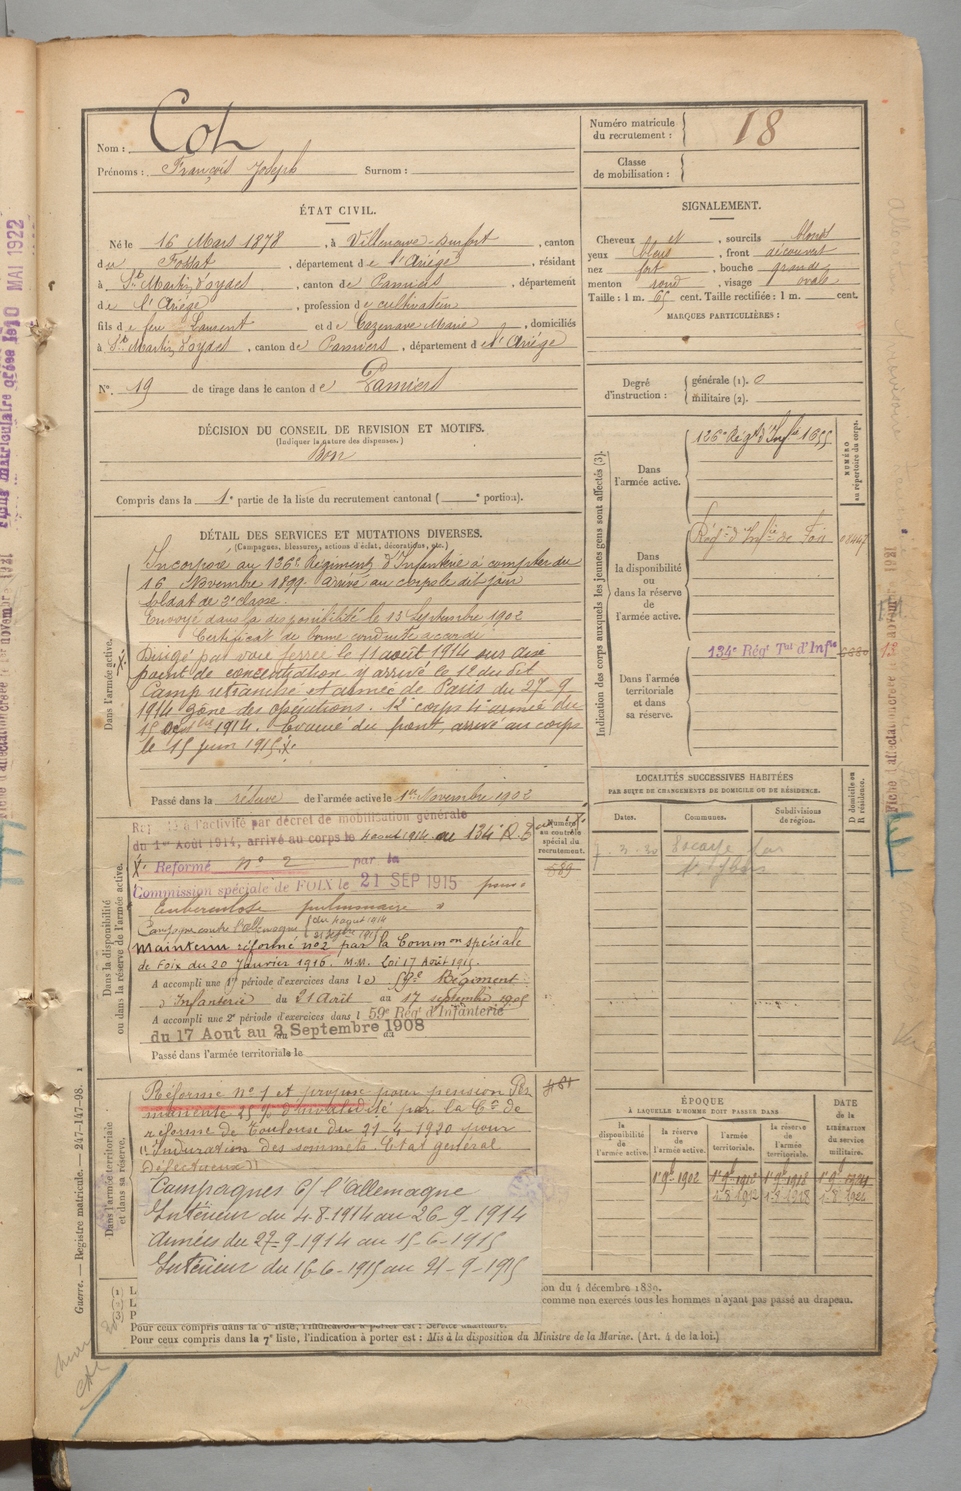 Nom : Col
Prénoms : François Joseph Surnom :
Numéro matricule du recrutement : 18
Classe de mobilisation :
ÉTAT CIVIL.
Né le 16 Mars 1878, à Villeneuve-Durfort, canton
du Fossat, département de l'Ariège, résidant
à St Martin d'oydes, canton de Pamiers, département
de l'Ariège, profession de cultivateur
fils de feu Laurent et de Cazenave Marie, domiciliés
à St Martin d'oydes, canton de Pamiers, département de l'Ariège
N° 19 de tirage dans le canton de Pamiers
SIGNALEMENT.
Cheveux et, sourcils blonds
yeux bleus, front découvert
nez fort, bouche grande
menton rond, visage ovale
Taille : 1 m. 65 cent. Taille rectifiée : 1 m. cent.
MARQUES PARTICULIÈRES :
Degré d'instruction : générale (1). 0
militaire (2).
DÉCISION DU CONSEIL DE REVISION ET MOTIFS.
(Indiquer la nature des dispenses.)
Bon
Compris dans la 1e partie de la liste du recrutement cantonal ( e portion).
DÉTAIL DES SERVICES ET MUTATIONS DIVERSES.
(Campagnes, blessures, actions d'éclat, décorations, etc.)
Dans l'armée active.
Incorporé au 136e Régiment d'Infanterie à compter du
16 Novembre 1899 arrivé au corps le dit jour
Soldat de 2e classe.
Envoyé dans la disponibilité le 13 Septembre 1902
Certificat de bonne conduite accordé
Dirigé par voie ferrée le 11 août 1914 sur
point de concentration y arrivé le 12 du dit
Camp retranché et armée de Paris du 27-9
1914 zone des opérations. 12e corps
1914. Evacué du front, arrivé au corps
le 15 juin 1915
Passé dans la réserve de l'armée active le 1er Novembre 1902
Dans la disponibilité ou dans la réserve de l'armée active.
à l'activité par décret de mobilisation générale
du 1er Août 1914, arrivé au corps le 4 août 1914 au 134e R.
Réformé n° 2 par la
Commission spéciale de FOIX le 21 SEP 1915 pour
Tuberculose pulmonaire »
Campagne contre l'Allemagne du 4 août 1914
Maintenu réformé n°2 par la Common spéciale
de Foix du 20 Janvier 1916. M.M. Loi 17 Août 1915.
A accompli une 1e période d'exercices dans le 59e Régiment
d'Infanterie du 21 Août au 17 septembre 1905
A accompli une 2e période d'exercices dans l 59e Rég' d'Infanterie
du 17 Aout au 2 Septembre 1908
Passé dans l'armée territoriale le
Numéro au contrôle spécial du recrutement.
589
Dans l'armée territoriale et dans sa réserve.
481
Réformé n° 1 et proposé pour pension Per
manente 25 % d'invalidité par la Con de
réforme de Toulouse du 21-4-1920 pour
"Induration des sommets. Etat général
Défectueux"
Campagnes C/ l'Allemagne
Intérieur du 4-8-1914 au 26-9-1914
Armées du 27-9-1914 au 15-6-1915
Intérieur du 16-6-1915 au 21-9-1915
Indication des corps auxquels les jeunes gens sont affectés (3).
NUMÉRO au répertoire du corps.
Dans l'armée active.
136e Régt d'Infie 1655
Dans la disponibilité ou dans la réserve de l'armée active.
Régt d'Infie de Foix
Dans l'armée territoriale et dans sa réserve.
134e Régt Tal d'Infie
LOCALITÉS SUCCESSIVES HABITÉES
PAR SUITE DE CHANGEMENTS DE DOMICILE OU DE RÉSIDENCE.
D domicile ou R résidence.
Dates. Communes. Subdivisions de région.
ÉPOQUE
À LAQUELLE L'HOMME DOIT PASSER DANS
DATE de la LIBÉRATION du service militaire.
la disponibilité de l'armée active.
la réserve de l'armée active.
l'armée territoriale.
la réserve de l'armée territoriale.
1er 9bre 1902 1er 9bre 1912 1er 9bre 1918 1er 9bre 1924
1-8 1912 1-8 1918 1-8 1924
ion du 4 décembre 1889.
comme non exercés tous les hommes n'ayant pas passé au drapeau.
Pour ceux compris dans la 6e liste, l'indication à porter est : Service auxiliaire.
Pour ceux compris dans la 7e liste, l'indication à porter est : Mis à la disposition du Ministre de la Marine. (Art. 4 de la loi.)
Guerre. — Registre matricule. — 247-147-98.
MAI 1922
Fiche d'affectation créée le 1er novembre 1921